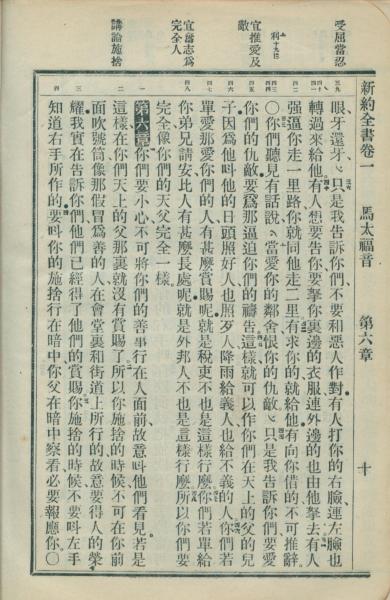 新約全書卷一 馬太福音 第六章 十
受屈當忍
利十九 十八
宜推愛及敵
宜奮志爲完全人
講論施捨
三九 四十 四一 四二 四三 四四 四五 四六 四七 四八 一 二 三 四
眼牙還牙只是我告訴你們不要和惡人作對有人打你的右臉連左臉也
轉過來給他有人想要告你要拏你裏邊的衣服連外邊的也由他拏去有人
强逼你走一里路你就同他走二里有求你的就給他有向你借的不可推辭
〇你們聽見有話說當愛你的鄰舍恨你的仇敵只是我告訴你們要愛
你們的仇敵要爲那逼迫你們的禱告這樣就可以作你們在天上的父的兒
子因爲他叫他的日頭照好人也照歹人降雨給義人也給不義的人你們若
單愛那愛你們的人有甚麼賞賜呢就是稅吏不也是這樣行麼你們若單給
你弟兄請安比人有甚麼長處呢就是外邦人不也是這樣行麼所以你們要
完全像你們的天父完全一樣
第六章你們要小心不可將你們的善事行在人面前故意叫他們看見若是
這樣在你們天上的父那裏就沒有賞賜了所以你施捨的時候不可在你前
面吹號筒像那假冒爲善的人在會堂裏和街道上所行的故意要得人的榮
耀我實在告訴你們他們已經得了他們的賞賜你施捨的時候不要叫左手
知道右手所作的要叫你的施捨行在暗中你父在暗中察看必要報應你〇